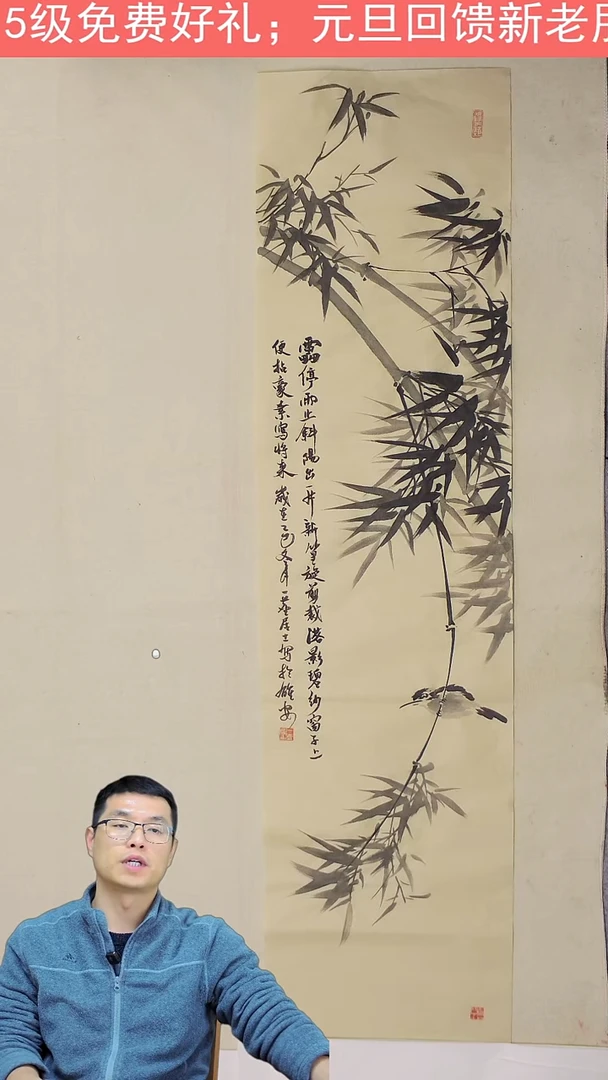 5级免费好礼；元旦回馈新老
靁停雨止斜陽出一片新篁旋剪裁落影碧紗窗子上
便拈豪素寫將來 歲在乙巳冬月一居士寫於雄安